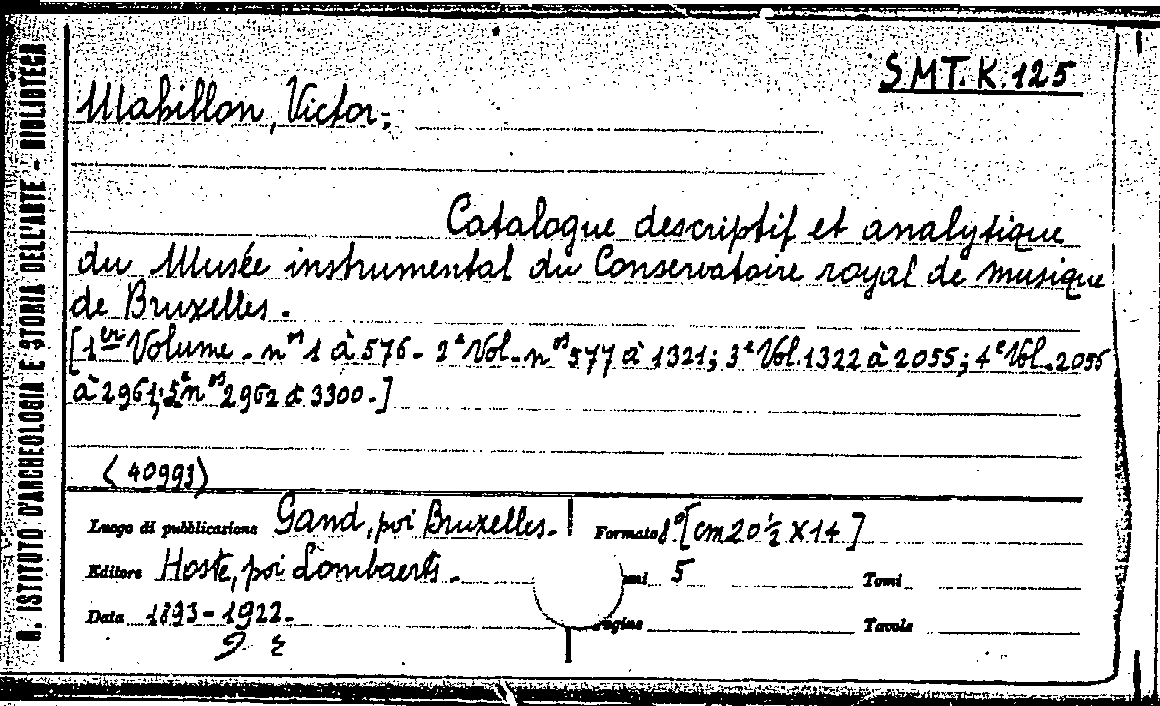 R. ISTITUTO D'ARCHEOLOGIA E STORIA DELL'ARTE - BIBLIOTECA
SMT. K. 125
Mahillon, Victor:
Catalogue descriptif et analytique
du Musée instrumental du Conservatoire royal de musique
de Bruxelles.
[1er Volume - nos 1 à 576 - 2e Vol. nos 577 à 1321; 3e Vol. 1322 à 2055; 4e Vol. 2056
à 2961; 5e nos 2962 à 3300.]
(40993)
Luogo di pubblicazione Gand, poi Bruxelles. Formato 8º [cm 20 ½ X 14]
Editore Hoste, poi Lombaerts. umi 5 Tomi
Data 1893-1922. agine Tavole